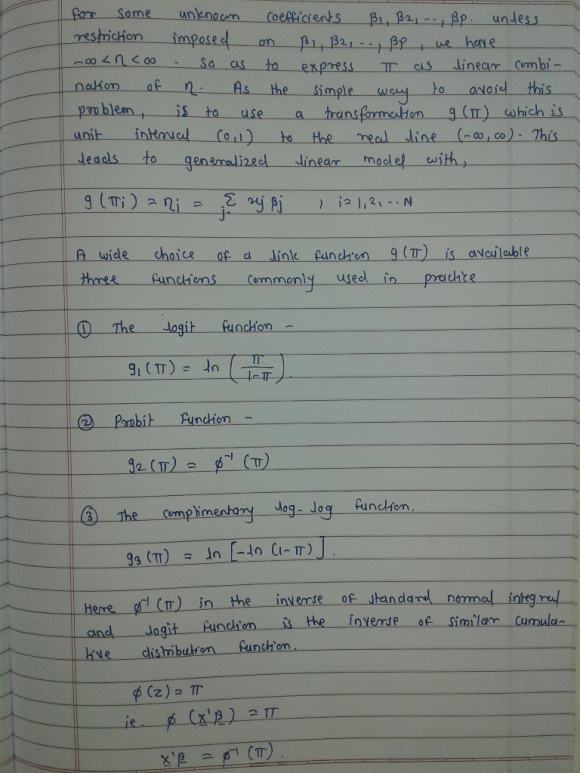 for some unknown coefficients β1, β2, .., βp. unless
restriction imposed on β1, β2, .., βp, we have
-∞ < η < ∞. so as to express π as linear combi-
nation of η. As the simple way to avoid this
problem, is to use a transformation g(π) which is
unit interval (0,1) to the real line (-∞,∞). This
leads to generalized linear model with,
g(πi) = ηi = Σj xj βj ; i=1,2,..N
A wide choice of a link function g(π) is available
three functions commonly used in practice
① The logit function -
g1(π) = ln (π/1-π).
② Probit function -
g2(π) = ϕ⁻¹(π)
③ The complimentary log-log function.
g3(π) = ln [-ln(1-π)].
Here ϕ⁻¹(π) in the inverse of standard normal integral
and logit function is the inverse of similar cumula-
tive distribution function.
ϕ(z) = π
ie. ϕ(x'β) = π
x'β = ϕ⁻¹(π).